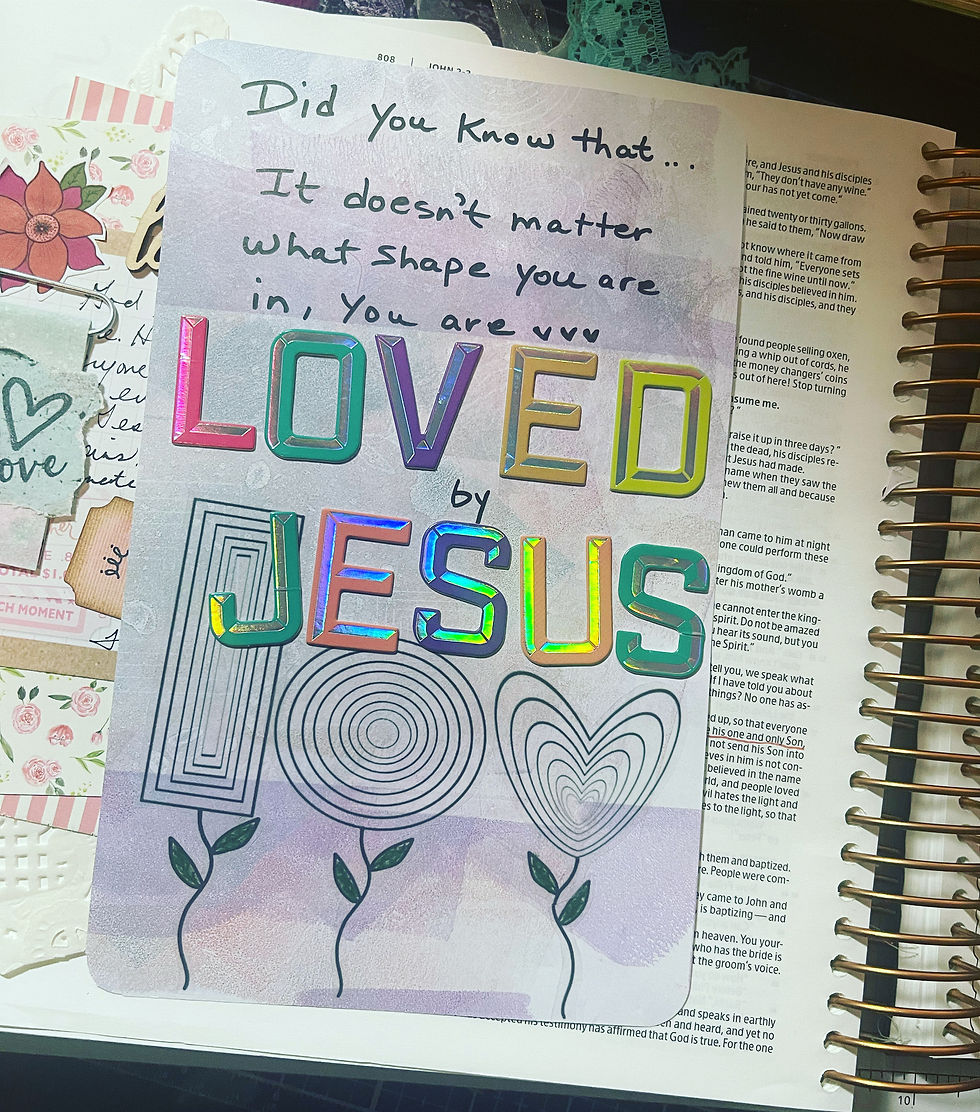 808 | JOHN 2-3
Did You Know that...
It doesn't matter
what shape you are
in, You are
LOVED
by
JESUS
ove
CH MOMENT
re, and Jesus and his disciples
"They don't have any wine."
our has not yet come."
ained twenty or thirty gallons.
he said to them, "Now draw
t know where it came from
nd told him, "Everyone sets
t the fine wine until now."
his disciples believed in him.
, and his disciples, and they
found people selling oxen,
ing a whip out of cords, he
the money changers' coins
s out of here! Stop turning
sume me.
raise it up in three days?"
the dead, his disciples re-
t Jesus had made.
name when they saw the
ew them all and because
an came to him at night
one could perform these
ingdom of God."
ter his mother's womb a
e cannot enter the king-
spirit. Do not be amazed
hear its sound, but you
he Spirit."
tell you, we speak what
f I have told you about
things? No one has as-
ed up, so that everyone
his one and only Son,
not send his Son into
eves in him is not con-
believed in the name
rld, and people loved
vil hates the light and
es to the light, so that
them and baptized.
re. People were com-
ey came to John and
is baptizing—and
heaven. You your-
who has the bride is
t the groom's voice.
and speaks in earthly
en and heard, and yet no
accepted his testimony has affirmed that God is true. For the one
10